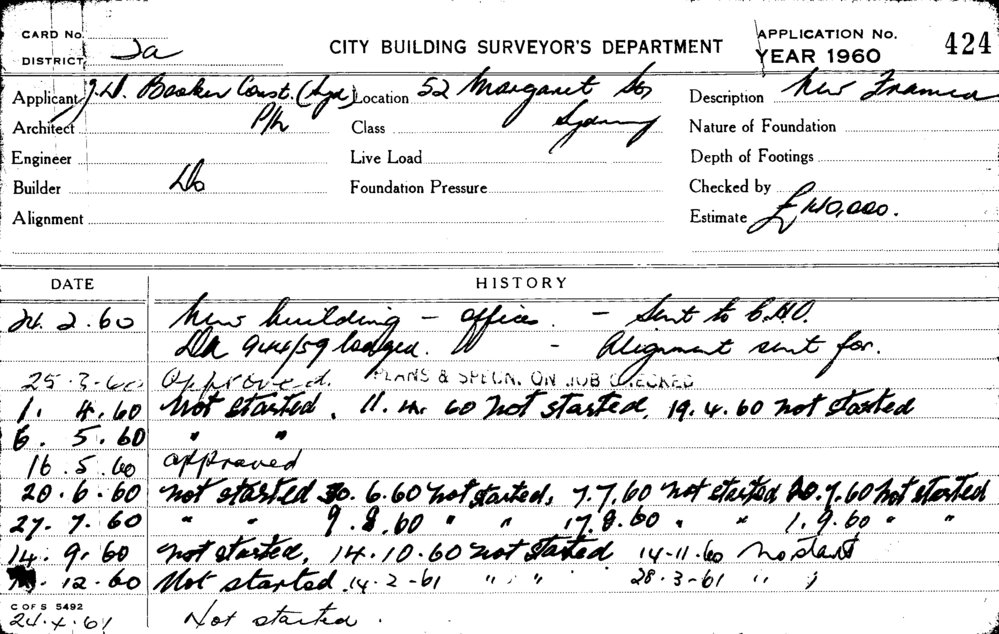 CARD No.
DISTRICT 2a
CITY BUILDING SURVEYOR'S DEPARTMENT
APPLICATION No. 424
YEAR 1960
Applicant J.D. Booker Const. (Syd) P/L
Location 52 Margaret St, Sydney
Description New Framed
Architect
Class
Nature of Foundation
Engineer
Live Load
Depth of Footings
Builder Do
Foundation Pressure
Checked by
Alignment
Estimate £140,000.
DATE HISTORY
24.2.60 New building - offices. - Sent to C.H.O.
DA 944/59 lodged. - Alignment sent for.
25.3.60 Approved. PLANS & SPECN. ON JOB CHECKED
1. 4.60 Not started. 11. 4. 60 Not started, 19.4.60 not started
6. 5.60 " "
16.5.60 approved
20.6.60 not started 30.6.60 not started, 7.7.60 not started 20.7.60 not started
27.7.60 " " 9.8.60 " " 17.8.60 " " 1.9.60 " "
14.9.60 not started, 14.10.60 not started 14-11-60 no start
12.60 Not started 14.2-61 " " 28.3-61 " "
C OF S 5492
24.4.61 Not started.